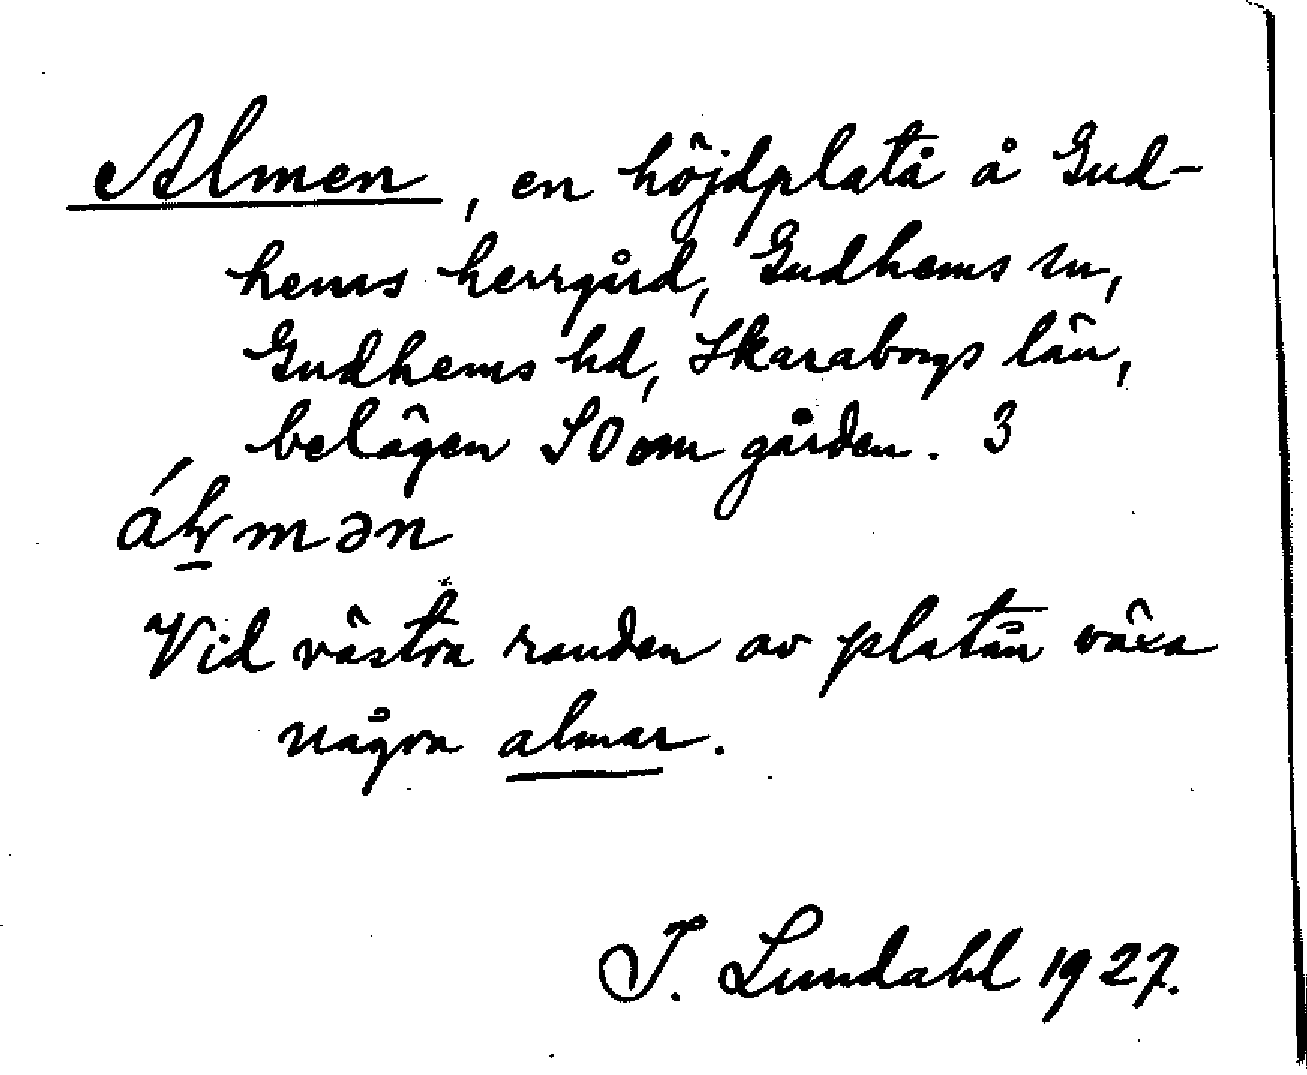 Almen, en höjdplatå å Gud-
hems herrgård, Gudhems sn,
Gudhems hd, Skaraborgs län,
belägen SO om gården. 3
mən
Vid västra randen av platån växa
några almar.
I. Lundahl 1927.